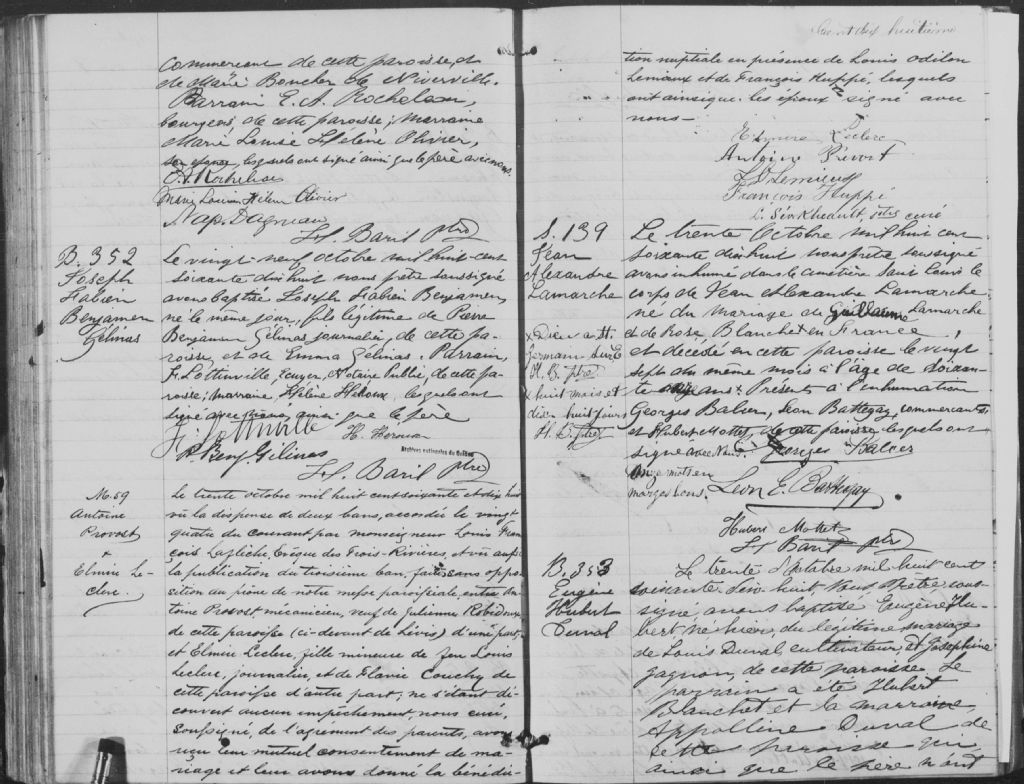 commercant de cette paroisse, et
de Marie Boucher de Niverville.
Parrain E. A. Rocheleau,
bourgeois de cette paroisse; marraine
Marie Louise Hélène Olivier,
son épouse, lesquels ont signé ainsi que le père avec nous.
E. A. Rocheleau
Marie Louise Hélène Olivier
Nap. Dagneau
H. Baril ptre
B. 352
Joseph
Fabien
Benjamen
Gélinas
Le vingt-neuf octobre mil huit-cent
soixante dix huit nous prêtre soussigné
avons baptisé Joseph Fabien Benjamen,
né le même jour, fils légitime de Pierre
Benjamen Gélinas journalier, de cette pa-
roisse, et de Emma Gélinas. Parrain,
F. Lottinville, Ecuyer, Notaire Public, de cette pa-
roisse; marraine, Hélène Héroux, lesquels ont
signé avec nous, ainsi que le père
F. Lottinville
H. Herou
P. Benj. Gélinas
Archives nationales du Québec
H. Baril ptre
M. 59
Antoine
Provost
&
Elmire Le-
clerc.
Le trente octobre mil huit cent soixante et dix huit
vu la dispense de deux bans, accordée le vingt
quatre du courant par monseigneur Louis Fran
çois Laflèche, Evêque des Trois-Rivières, et vu aussi
la publication du troisième ban, faite sans oppo
sition au prône de notre messe paroissiale, entre An-
toine Provost mécanicien, veuf de Julienne Robidoux
de cette paroisse (ci-devant de Lévis) d'une part;
et Elmire Leclerc, fille mineure de feu Louis
Leclerc, journalier, et de Flavie Couchy de
cette paroisse d'autre part; ne s'étant dé-
couvert aucun empêchement, nous curé,
soussigné, de l'agrément des parents, avons
reçu leur mutuel consentement de ma-
riage et leur avons donné la bénédic-
Cent dix huitième
tion nuptiale en présence de Louis Odilon
Lemieux et de François Huppé, lesquels
ont ainsi que les époux signé avec
nous—
Elmire Leclerc
Antoine Provost
L. O. Lemieux
François Huppé
ptre curé
S. 139
Jean
Alexandre
Lamarche
Le trente Octobre mil huit cent
soixante dix huit nous prêtre soussigné
avons inhumé dans le cimetière Saint Louis le
corps de Jean Alexandre Lamarche
né du mariage de Guillaume Lamarche
et de Rose Blanchet en France,
et décédé en cette paroisse le vingt
sept du même mois à l'âge de soixan-
te onze ans x Présents à l'inhumation
Georges Balcer, Leon Battegay, commercants,
et Hubert Mottet, de cette paroisse lesquels ont
signé avec Nous.
x Dieu a St.
Germain
H. B. ptre
x huit mois et
dix huit jours
H. B. ptre
Georges Balcer
Onze mots en
marge bons.
Leon E. Battegay
Hubert Mottet
H. Baril ptre
B. 353
Eugène
Hubert
Duval
Le trente Octobre mil huit cent
soixante dix-huit, Nous prêtre sous-
signé, avons baptisé Eugène Hu-
bert né hier, du légitime mariage
de Louis Duval, cultivateur, et Joséphine
Gagnon, de cette paroisse. Le
parrain a été Hubert
Blanchet et la marraine
Appolline Duval de
cette paroisse qui,
ainsi que le père n'ont